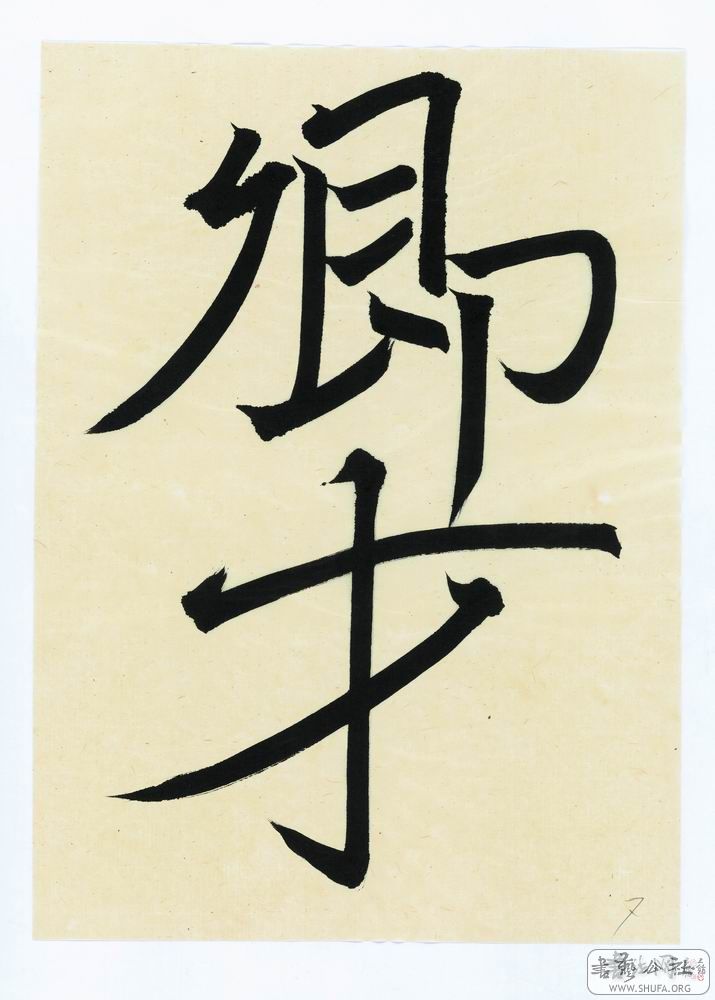 卿
才
7
書藝公社
WWW.SHUFA.ORG